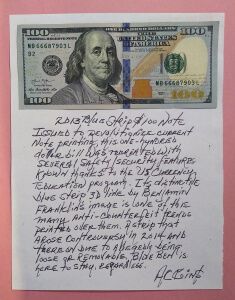 100
FEDERAL RESERVE NOTE
THE UNITED STATES OF AMERICA
100
MB 66687903 L
B2
MB 66687903 L
100
100
2013 Blue Strip $100 NOTE
Issued to revolutionize current
Note printing, this one-hundred
dollar bill was recreated with
several safety/security features
known thanks to the US Currency
Education program. Its distinctive
blue strip 3D line by Benjamin
Franklin's image is one of this
many anti-counterfeit trends
printed over them. A strip that
arose controversy in 2014 and
thereon due to allegedly being
loose or removable, Blue Ben is
here to stay, regardless.